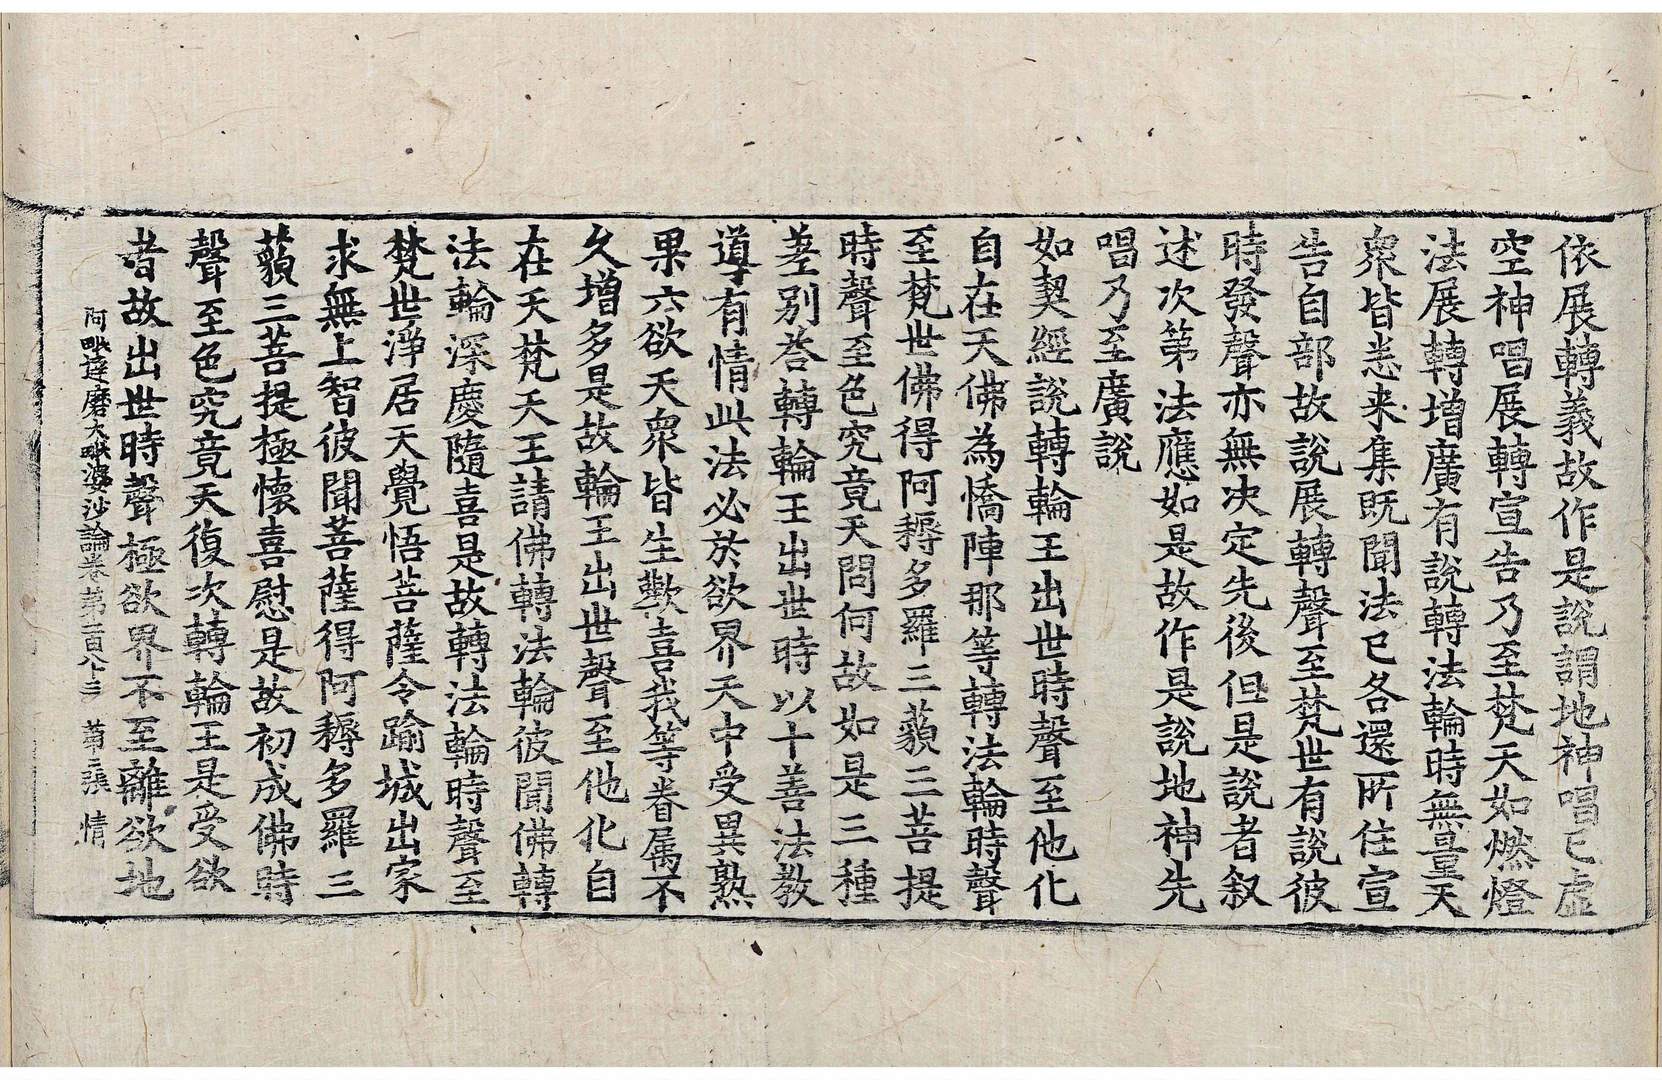 依展轉義故作是說謂地神唱已虛
空神唱展轉宣告乃至梵天如燃燈
法展轉增廣有說轉法輪時無量天
衆皆悉来集既聞法已各還所住宣
告自部故說展轉聲至梵世有說彼
時發聲亦無决定先後但是說者叙
述次第法應如是故作是說地神先
唱乃至廣說
如契經說轉輪王出世時聲至他化
自在天佛為憍陣那等轉法輪時聲
至梵世佛得阿耨多羅三藐三菩提
時聲至色究竟天問何故如是三種
差別荅轉輪王出世時以十善法教
導有情此法必於欲界天中受異熟
果六欲天衆皆生歡喜我等眷属不
久增多是故輪王出世聲至他化自
在天梵天王請佛轉法輪彼聞佛轉
法輪深慶隨喜是故轉法輪時聲至
梵世淨居天覺悟菩薩令踰城出家
求無上智彼聞菩薩得阿耨多羅三
藐三菩提極懷喜慰是故初成佛時
聲至色究竟天復次轉輪王是受欲
者故出世時聲極欲界不至離欲地
阿毗達磨大毗婆沙論卷第一百八十三 第二張 情